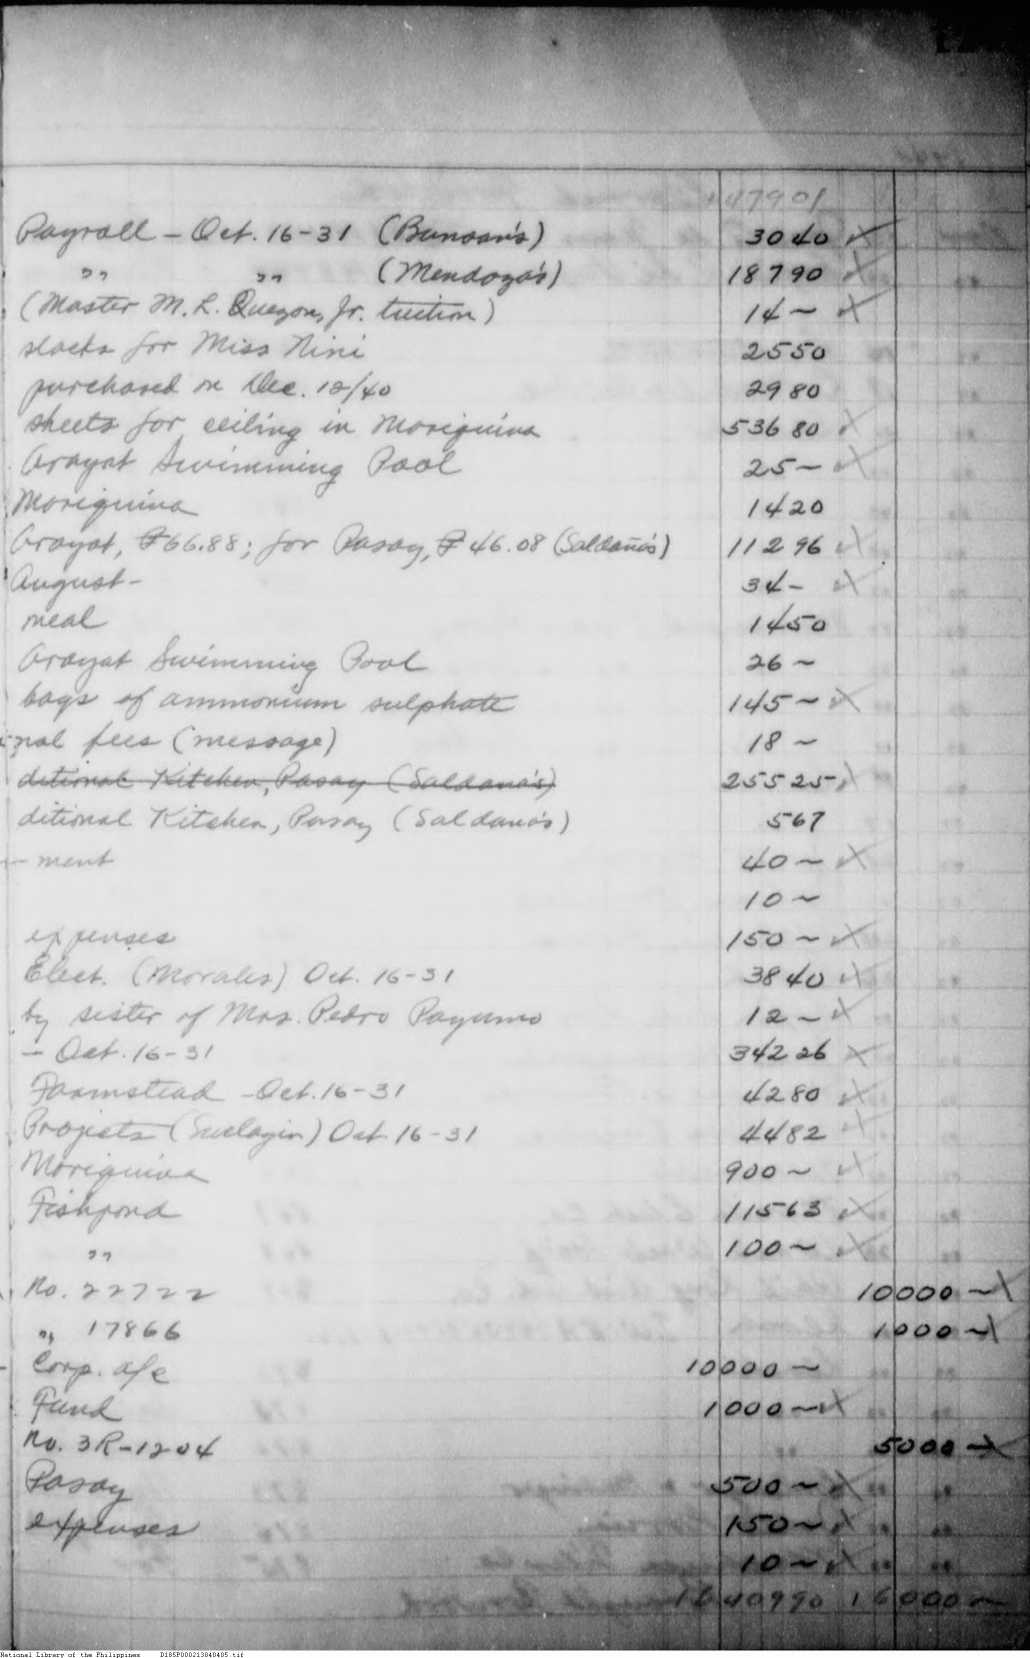 147901
Payroll - Oct. 16-31 (Bunoan's) 3040
" " (Mendoza's) 18790
(Master M. L. Quezon, Jr. tuition) 14 ~
slacks for Miss Nini 2550
purchased on Dec. 12/40 2980
sheets for ceiling in Mariquina 53680
Arayat Swimming Pool 25 ~
Mariquina 1420
Arayat, ₱66.88; for Pasay, ₱46.08 (Saldaña's) 11296
August - 34 -
meal 1450
Arayat Swimming Pool 26 ~
bags of ammonium sulphate 145 ~
nal fees (message) 18 ~
ditional Kitchen, Pasay (Saldana's) 25525
ditional Kitchen, Pasay (Saldana's) 567
ment 40 ~
10 ~
expenses 150 ~
Elect. (Morales) Oct. 16-31 3840
by sister of Mrs. Pedro Payumo 12 ~
- Oct. 16-31 34226
Farmstead - Oct. 16-31 4280
Projects (Suclayin) Oct 16-31 4482
Mariquina 900 ~
Fishpond 11563
" 100 ~
No. 22722 10000 ~
" 17866 1000 ~
Corp. a/c 10000 ~
Fund 1000 ~
No. 3R-1204 5000 ~
Pasay 500 ~
expenses 150 ~
10 ~
1640990 16000 ~
National Library of the Philippines D185P000213040405.tif